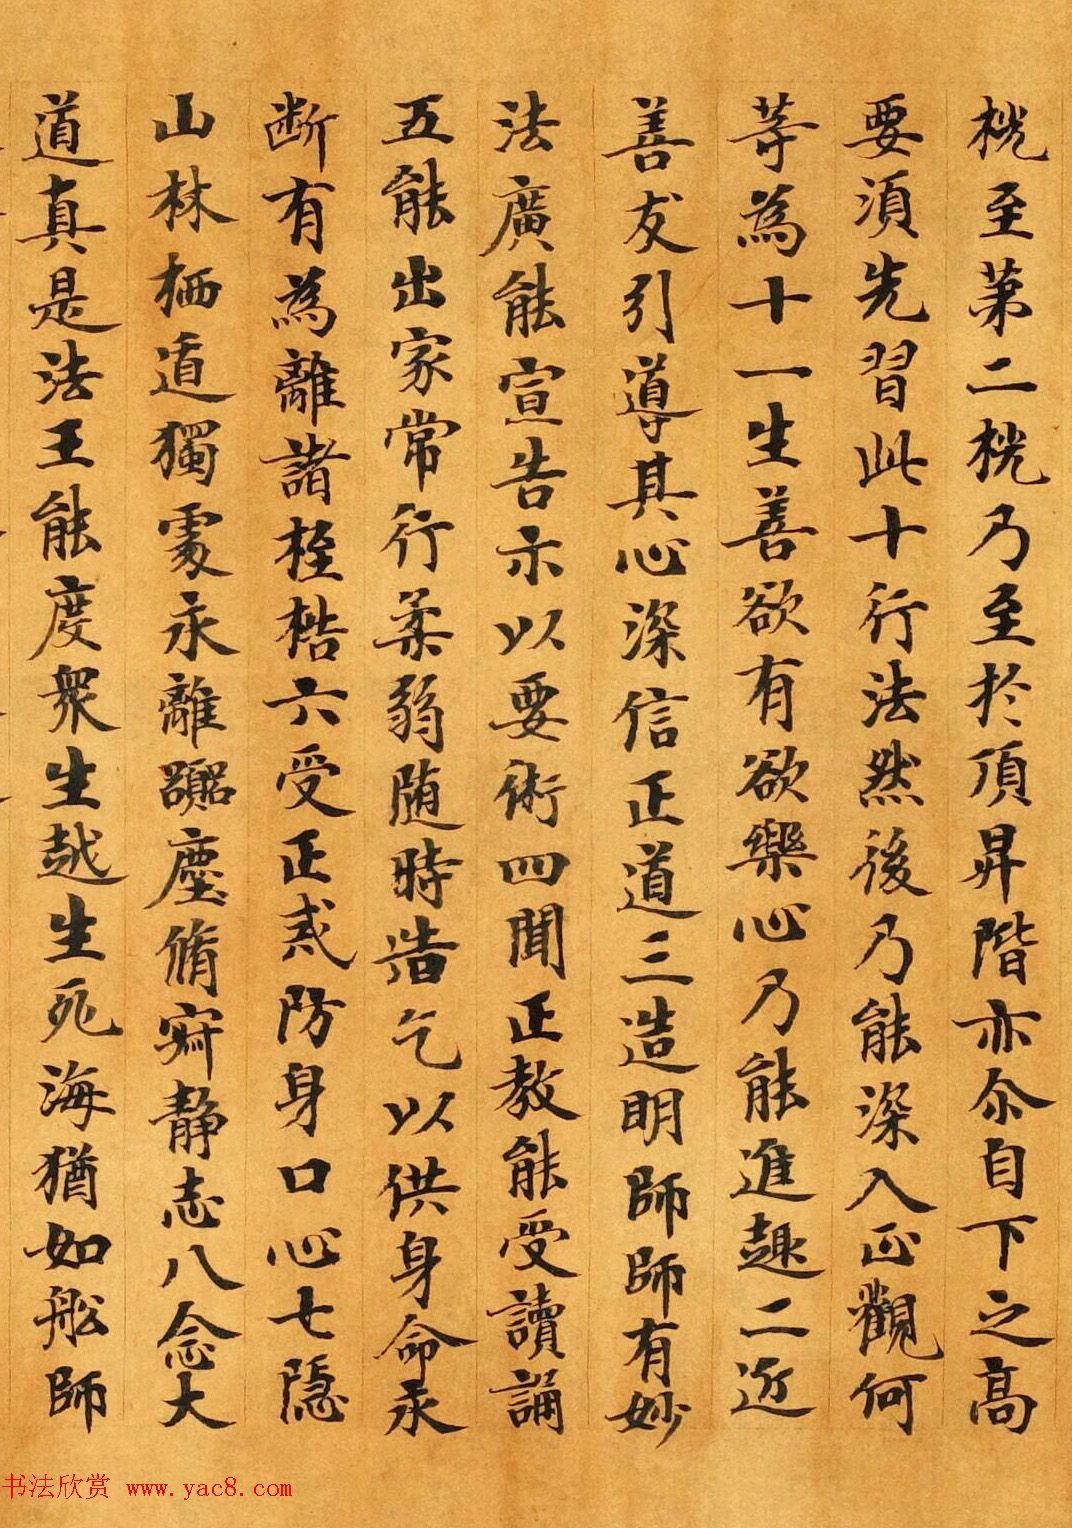 桄至第二桄乃至於頂昇階亦尒自下之高
要須先習此十行法然後乃能深入正觀何
等為十一生善欲有欲樂心乃能進趣二近
善友引導其心深信正道三造明師師有妙
法廣能宣告示以要術四聞正教能受讀誦
五能出家常行柔弱随時造乞以供身命永
断有為離諸桎梏六受正戒防身口心七隠
山林栖遁獨處永離囂塵脩寂静志八念大
道真是法王能度衆生越生死海猶如舩師
书法欣赏 www.yac8.com